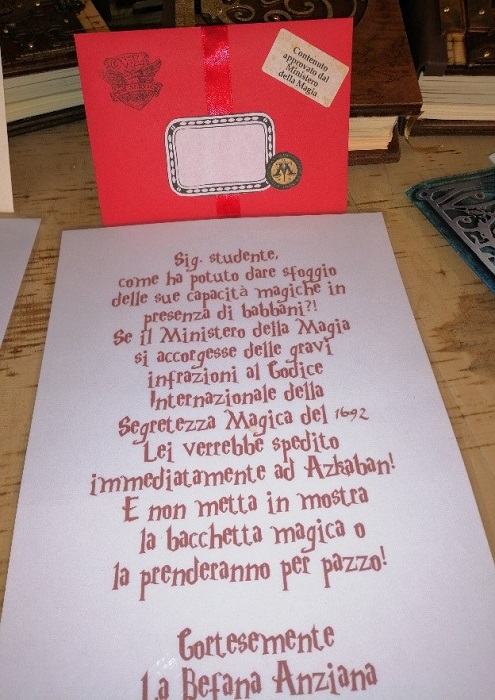 Contenuto
approvato dal
Ministero
della Magia
Sig. studente,
come ha potuto dare sfoggio
delle sue capacità magiche in
presenza di babbani?!
Se il Ministero della Magia
si accorgesse delle gravi
infrazioni al Codice
Internazionale della
Segretezza Magica del 1692
Lei verrebbe spedito
immediatamente ad Azkaban!
E non metta in mostra
la bacchetta magica o
la prenderanno per pazzo!
Cortesemente
La Befana Anziana